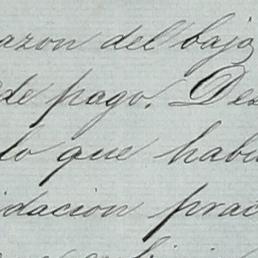 azon del bajo
de pago. Des
lo que habi
idacion prac